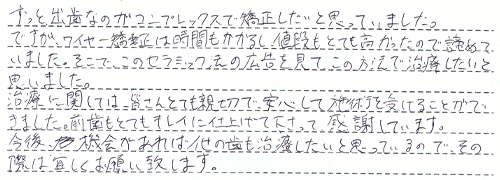 ずっと出歯なのがコンプレックスで矯正したいと思っていました。
ですが、ワイヤー矯正は時間もかかるし、値段もとても高かったので諦めて
いました。そこで、このセラミック法の広告を見て、この方法で治療したいと
思いました。
治療に関しては、皆さんとても親切で、安心して施術を受けることがで
きました。前歯もとてもキレイに仕上げて下さって、感謝しています。
今後、機会があれば他の歯も治療したいと思っているので、その
際は宜しくお願い致します。